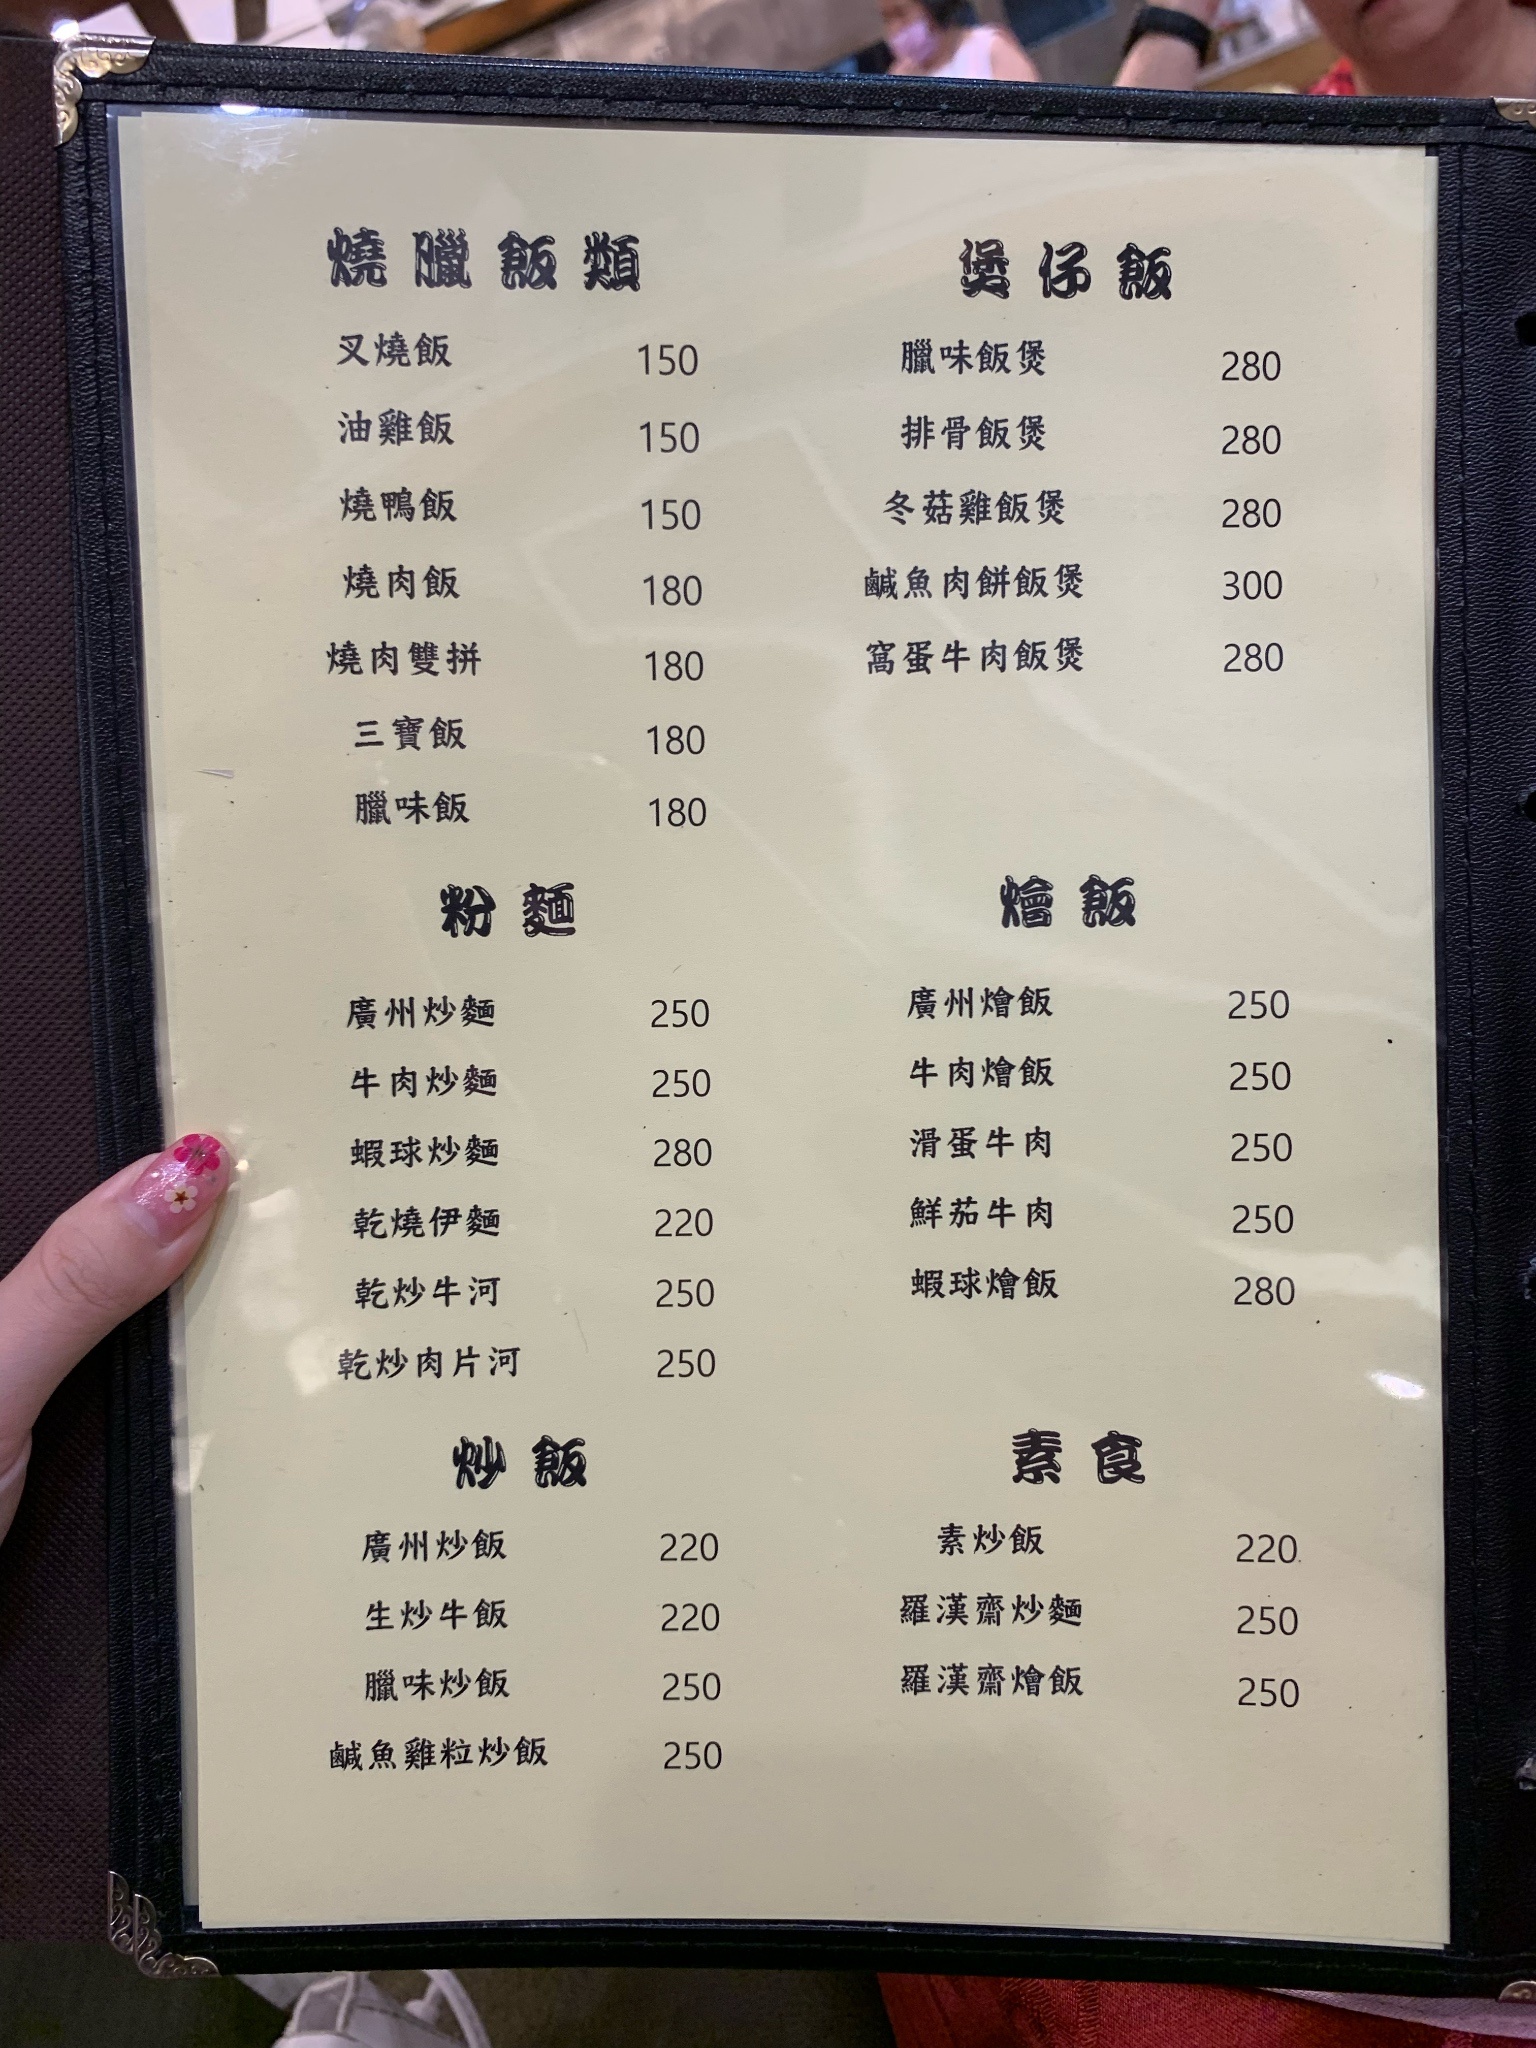 燒臘飯類
叉燒飯 150
油雞飯 150
燒鴨飯 150
燒肉飯 180
燒肉雙拼 180
三寶飯 180
臘味飯 180
煲仔飯
臘味飯煲 280
排骨飯煲 280
冬菇雞飯煲 280
鹹魚肉餅飯煲 300
窩蛋牛肉飯煲 280
粉麵
廣州炒麵 250
牛肉炒麵 250
蝦球炒麵 280
乾燒伊麵 220
乾炒牛河 250
乾炒肉片河 250
燴飯
廣州燴飯 250
牛肉燴飯 250
滑蛋牛肉 250
鮮茄牛肉 250
蝦球燴飯 280
炒飯
廣州炒飯 220
生炒牛飯 220
臘味炒飯 250
鹹魚雞粒炒飯 250
素食
素炒飯 220
羅漢齋炒麵 250
羅漢齋燴飯 250